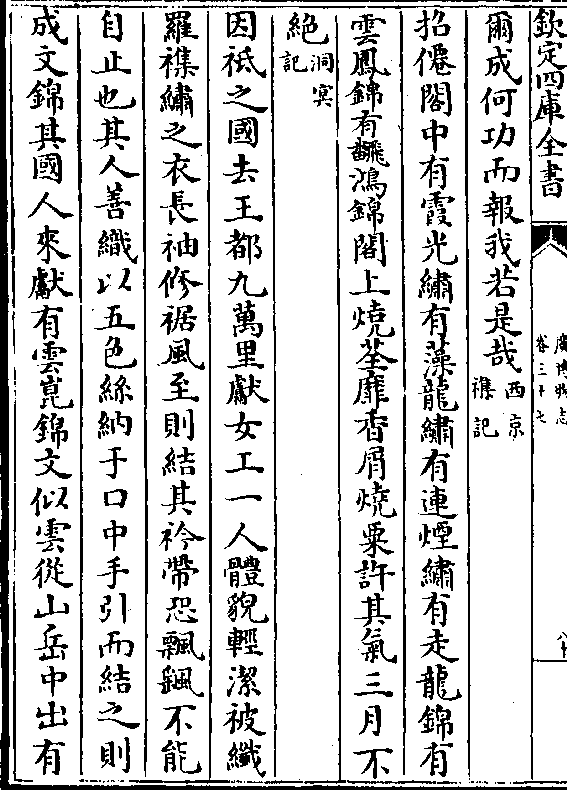 欽定四庫全書
廣博物志
卷三十七
爾成何功而報我若是哉西京
雜記
招僊閣中有霞光繡有藻龍繡有連煙繡有走龍錦有
雲鳳錦有飜鴻錦閣上燒荃蘼香屑燒粟許其氣三月不
絶洞冥
記
因袛之國去王都九萬里獻女工一人體貌輕潔被纖
羅襍繡之衣長袖修裾風至則結其衿帶恐飄颻不能
自止也其人善織以五色絲納于口中手引而結之則
成文錦其國人來獻有雲崑錦文似雲從山岳中出有